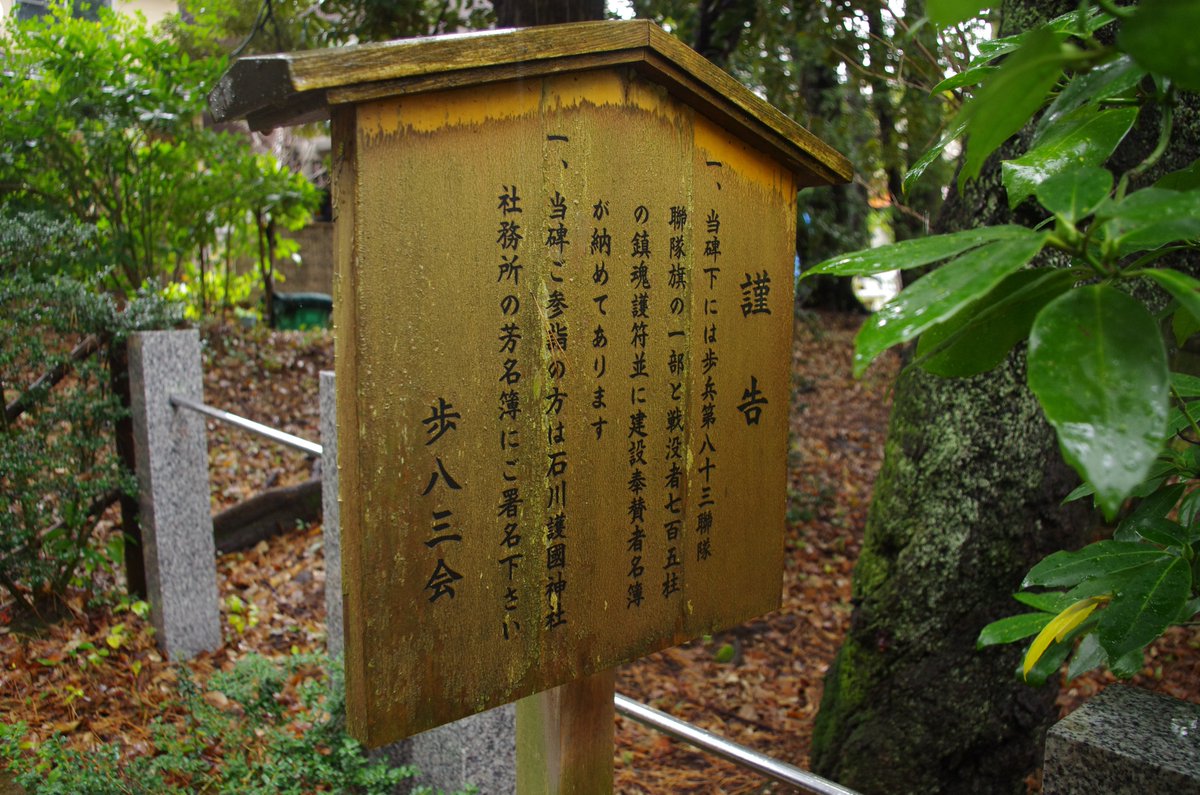 謹告
一、当碑下には歩兵第八十三聯隊
聯隊旗の一部と戦没者七百五柱
の鎮魂護符並に建設奉賛者名簿
が納めてあります
一、当碑ご参詣の方は石川護國神社
社務所の芳名簿にご署名下さい
歩八三会